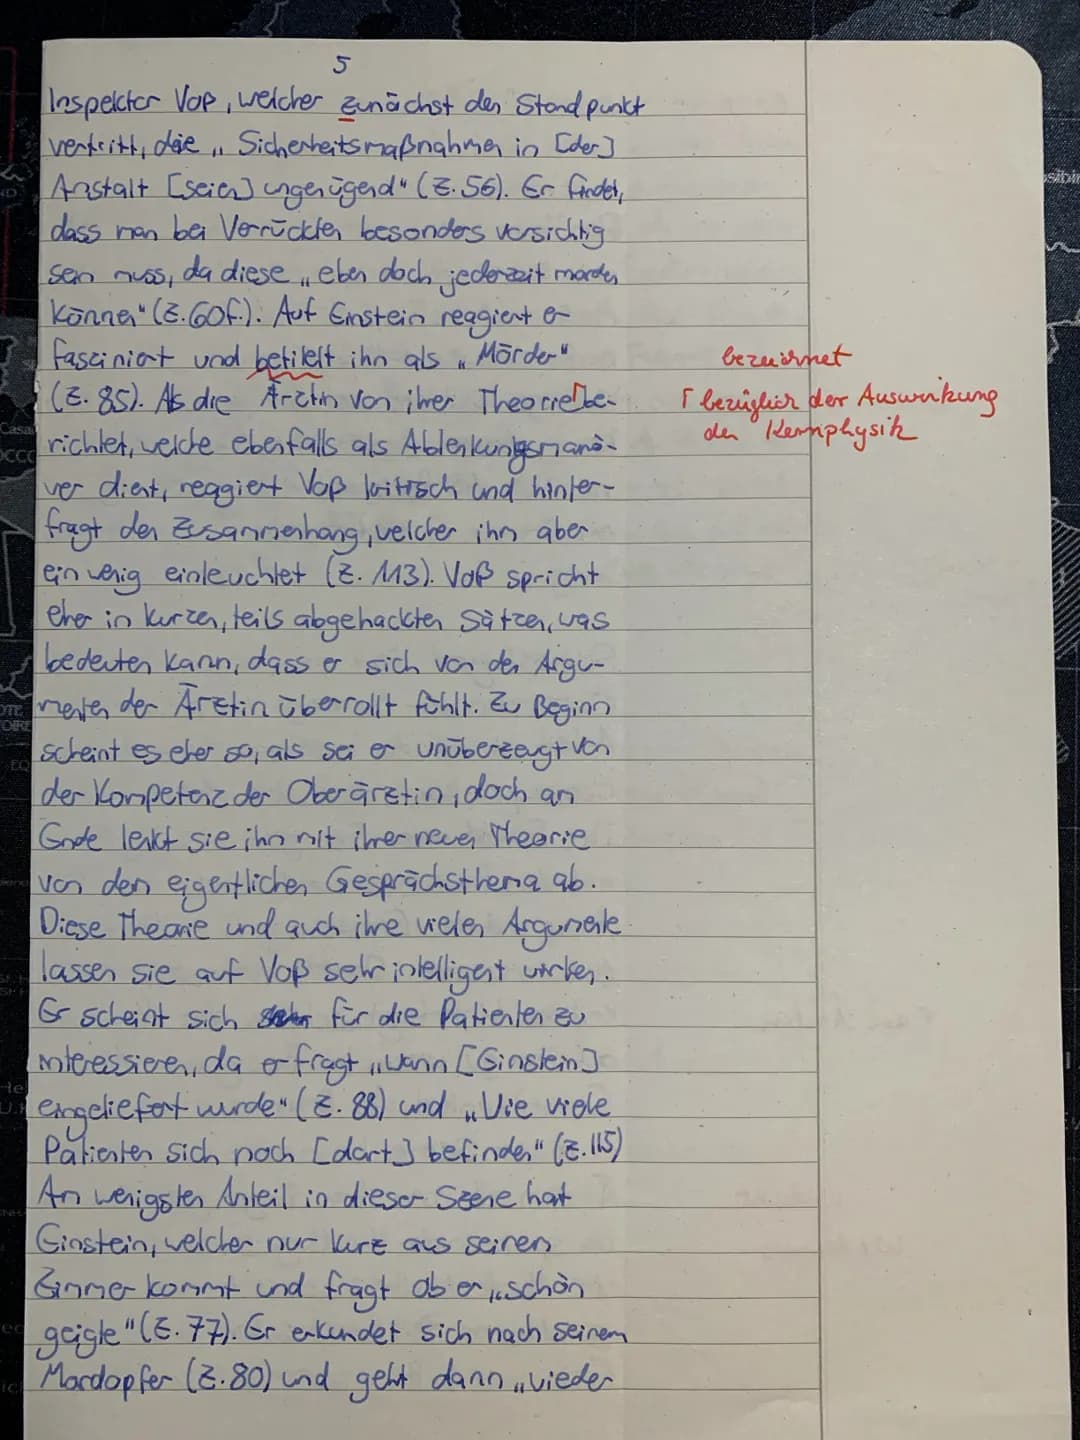 5
Inspektor Voß, welcher zunächst den Standpunkt
vertritt, die „Sicherheitsmaßnahmen in [der]
Anstalt [seien] ungenügend" (Z. 56). Er findet,
dass man bei Verrückten besonders vorsichtig
sein muss, da diese „eben doch jederzeit morden
können" (Z. 60f.). Auf Einstein reagiert er
fasziniert und betitelt ihn als „Mörder"
bezeichnet
(Z. 85). Als die Ärztin von ihrer Theorie⌈be-
⌈ bezüglich der Auswirkung
der Kernphysik
richtet, welche ebenfalls als Ablenkungsmanö-
ver dient, reagiert Voß kritisch und hinter-
fragt den Zusammenhang, welcher ihm aber
ein wenig einleuchtet (Z. 113). Voß spricht
eher in kurzen, teils abgehackten Sätzen, was
bedeuten kann, dass er sich von den Argu-
menten der Ärztin überrollt fühlt. Zu Beginn
scheint es eher so, als sei er unüberzeugt von
der Kompetenz der Oberärztin, doch am
Ende lenkt sie ihn mit ihrer neuen Theorie
von dem eigentlichen Gesprächsthema ab.
Diese Theorie und auch ihre vielen Argumente
lassen sie auf Voß sehr intelligent wirken.
Er scheint sich für die Patienten zu
interessieren, da er fragt „wann [Einstein]
eingeliefert wurde" (Z. 88) und „Wie viele
Patienten sich noch [dort] befinden" (Z. 115)
Am wenigsten Anteil in dieser Szene hat
Einstein, welcher nur kurz aus seinem
Zimmer kommt und fragt ob er „schön
geigle" (Z. 77). Er erkundet sich nach seinem
Mordopfer (Z. 80) und geht dann „wieder